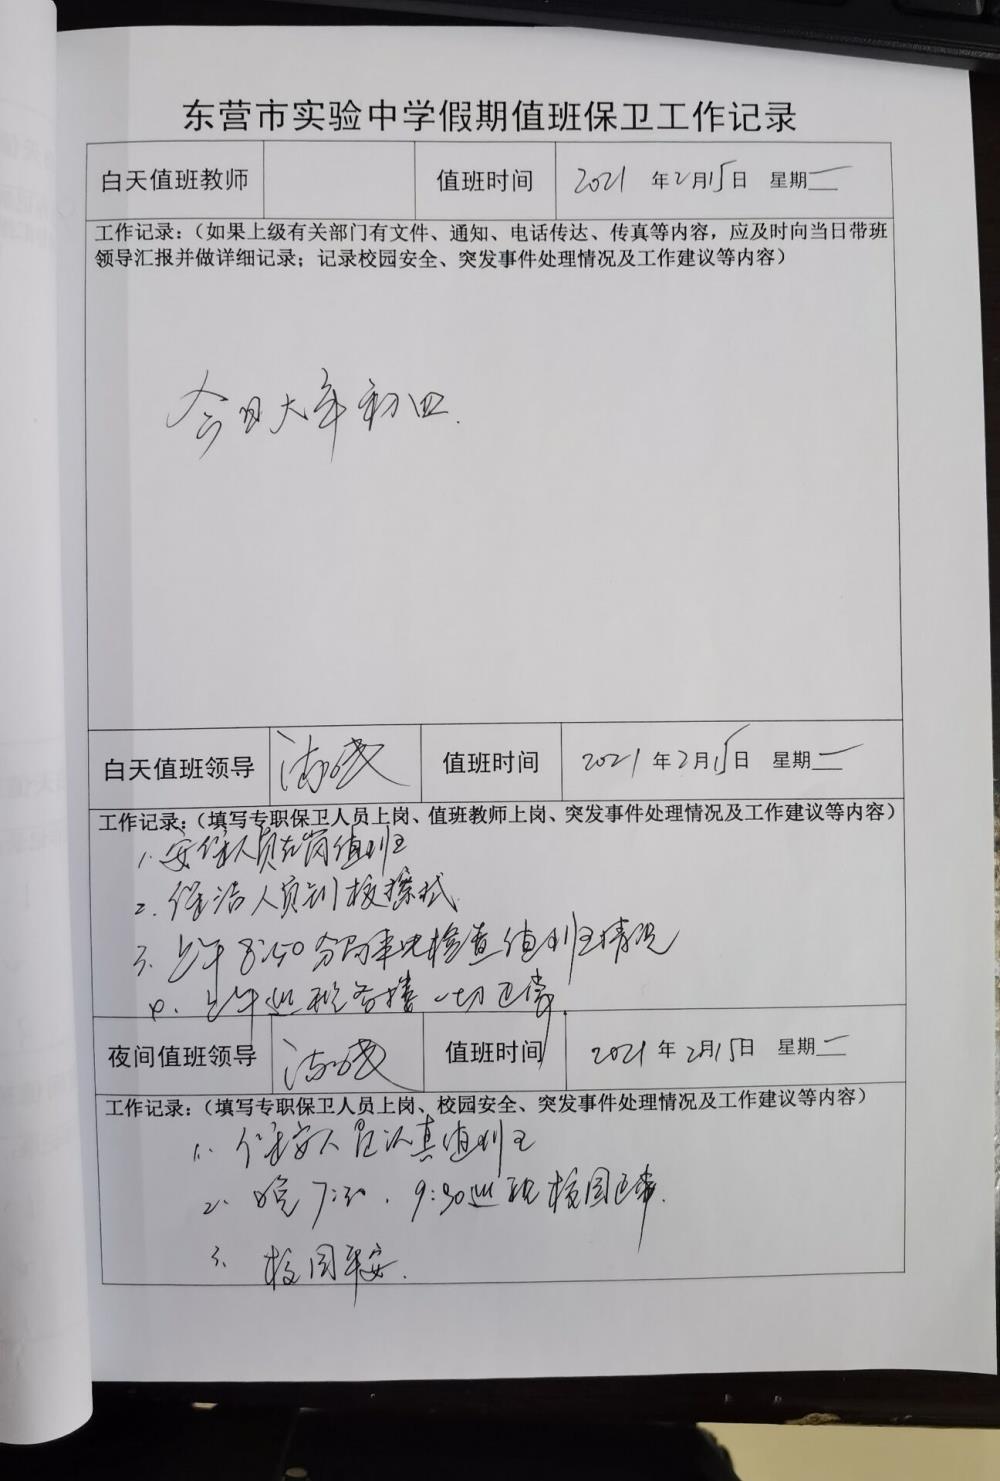 东营市实验中学假期值班保卫工作记录
白天值班教师 值班时间 2021 年 2 月 15 日 星期一
工作记录：（如果上级有关部门有文件、通知、电话传达、传真等内容，应及时向当日带班
领导汇报并做详细记录；记录校园安全、突发事件处理情况及工作建议等内容）
今日大年初四.
白天值班领导 值班时间 2021 年 2 月 15 日 星期一
工作记录：（填写专职保卫人员上岗、值班教师上岗、突发事件处理情况及工作建议等内容）
1. 安保人员在岗值班
2. 保洁人员到校擦拭
3. 上午 8:50 分局来此检查值班情况
4. 上午巡视各楼一切正常.
夜间值班领导 值班时间 2021 年 2 月 15 日 星期一
工作记录：（填写专职保卫人员上岗、校园安全、突发事件处理情况及工作建议等内容）
1. 保安人员认真值班
2. 晚 7:30. 9:30 巡视校园正常.
3. 校园平安.